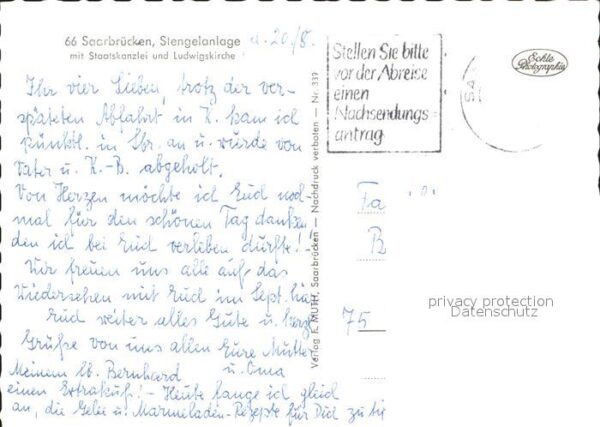 66 Saarbrücken, Stengelanlage
mit Staatskanzlei und Ludwigskirche
d. 20/8.
Ihr vier Lieben, trotz der ver-
späteten Abfahrt in K. kam ich
pünktl. in Sbr. an u. wurde von
Vater u. K.-B. abgeholt.
Von Herzen möchte ich Euch noch
mal für den schönen Tag danken
den ich bei Euch verleben durfte!
Wir freuen uns alle auf das
Wiedersehen mit Euch im Sept.
Euch weiter alles Gute u. herzl.
Grüße von uns allen Eure Mutter
u. Oma
Meinem lb. Bernhard
einen Extrakuß! – Heute fange ich gleich
an, die Gelee u. Marmeladen-Rezepte für Dich zu
Verlag F. MUTH, Saarbrücken — Nachdruck verboten — Nr. 339
Stellen Sie bitte
vor der Abreise
einen
Nachsendungs-
antrag
Echte
Photographie
Fa
B
75
privacy protection
Datenschutz